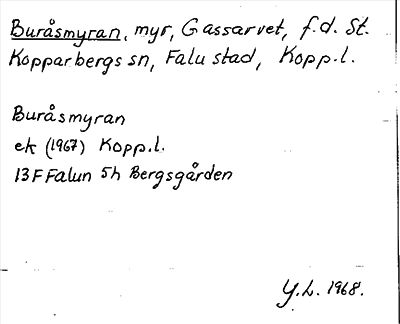 Buråsmyran, myr, Gassarvet, f.d. St.
Kopparbergs sn, Falu stad, Kopp.l.
Buråsmyran
ek (1967) Kopp.l.
13F Falun 5h Bergsgården
Y.L. 1968.